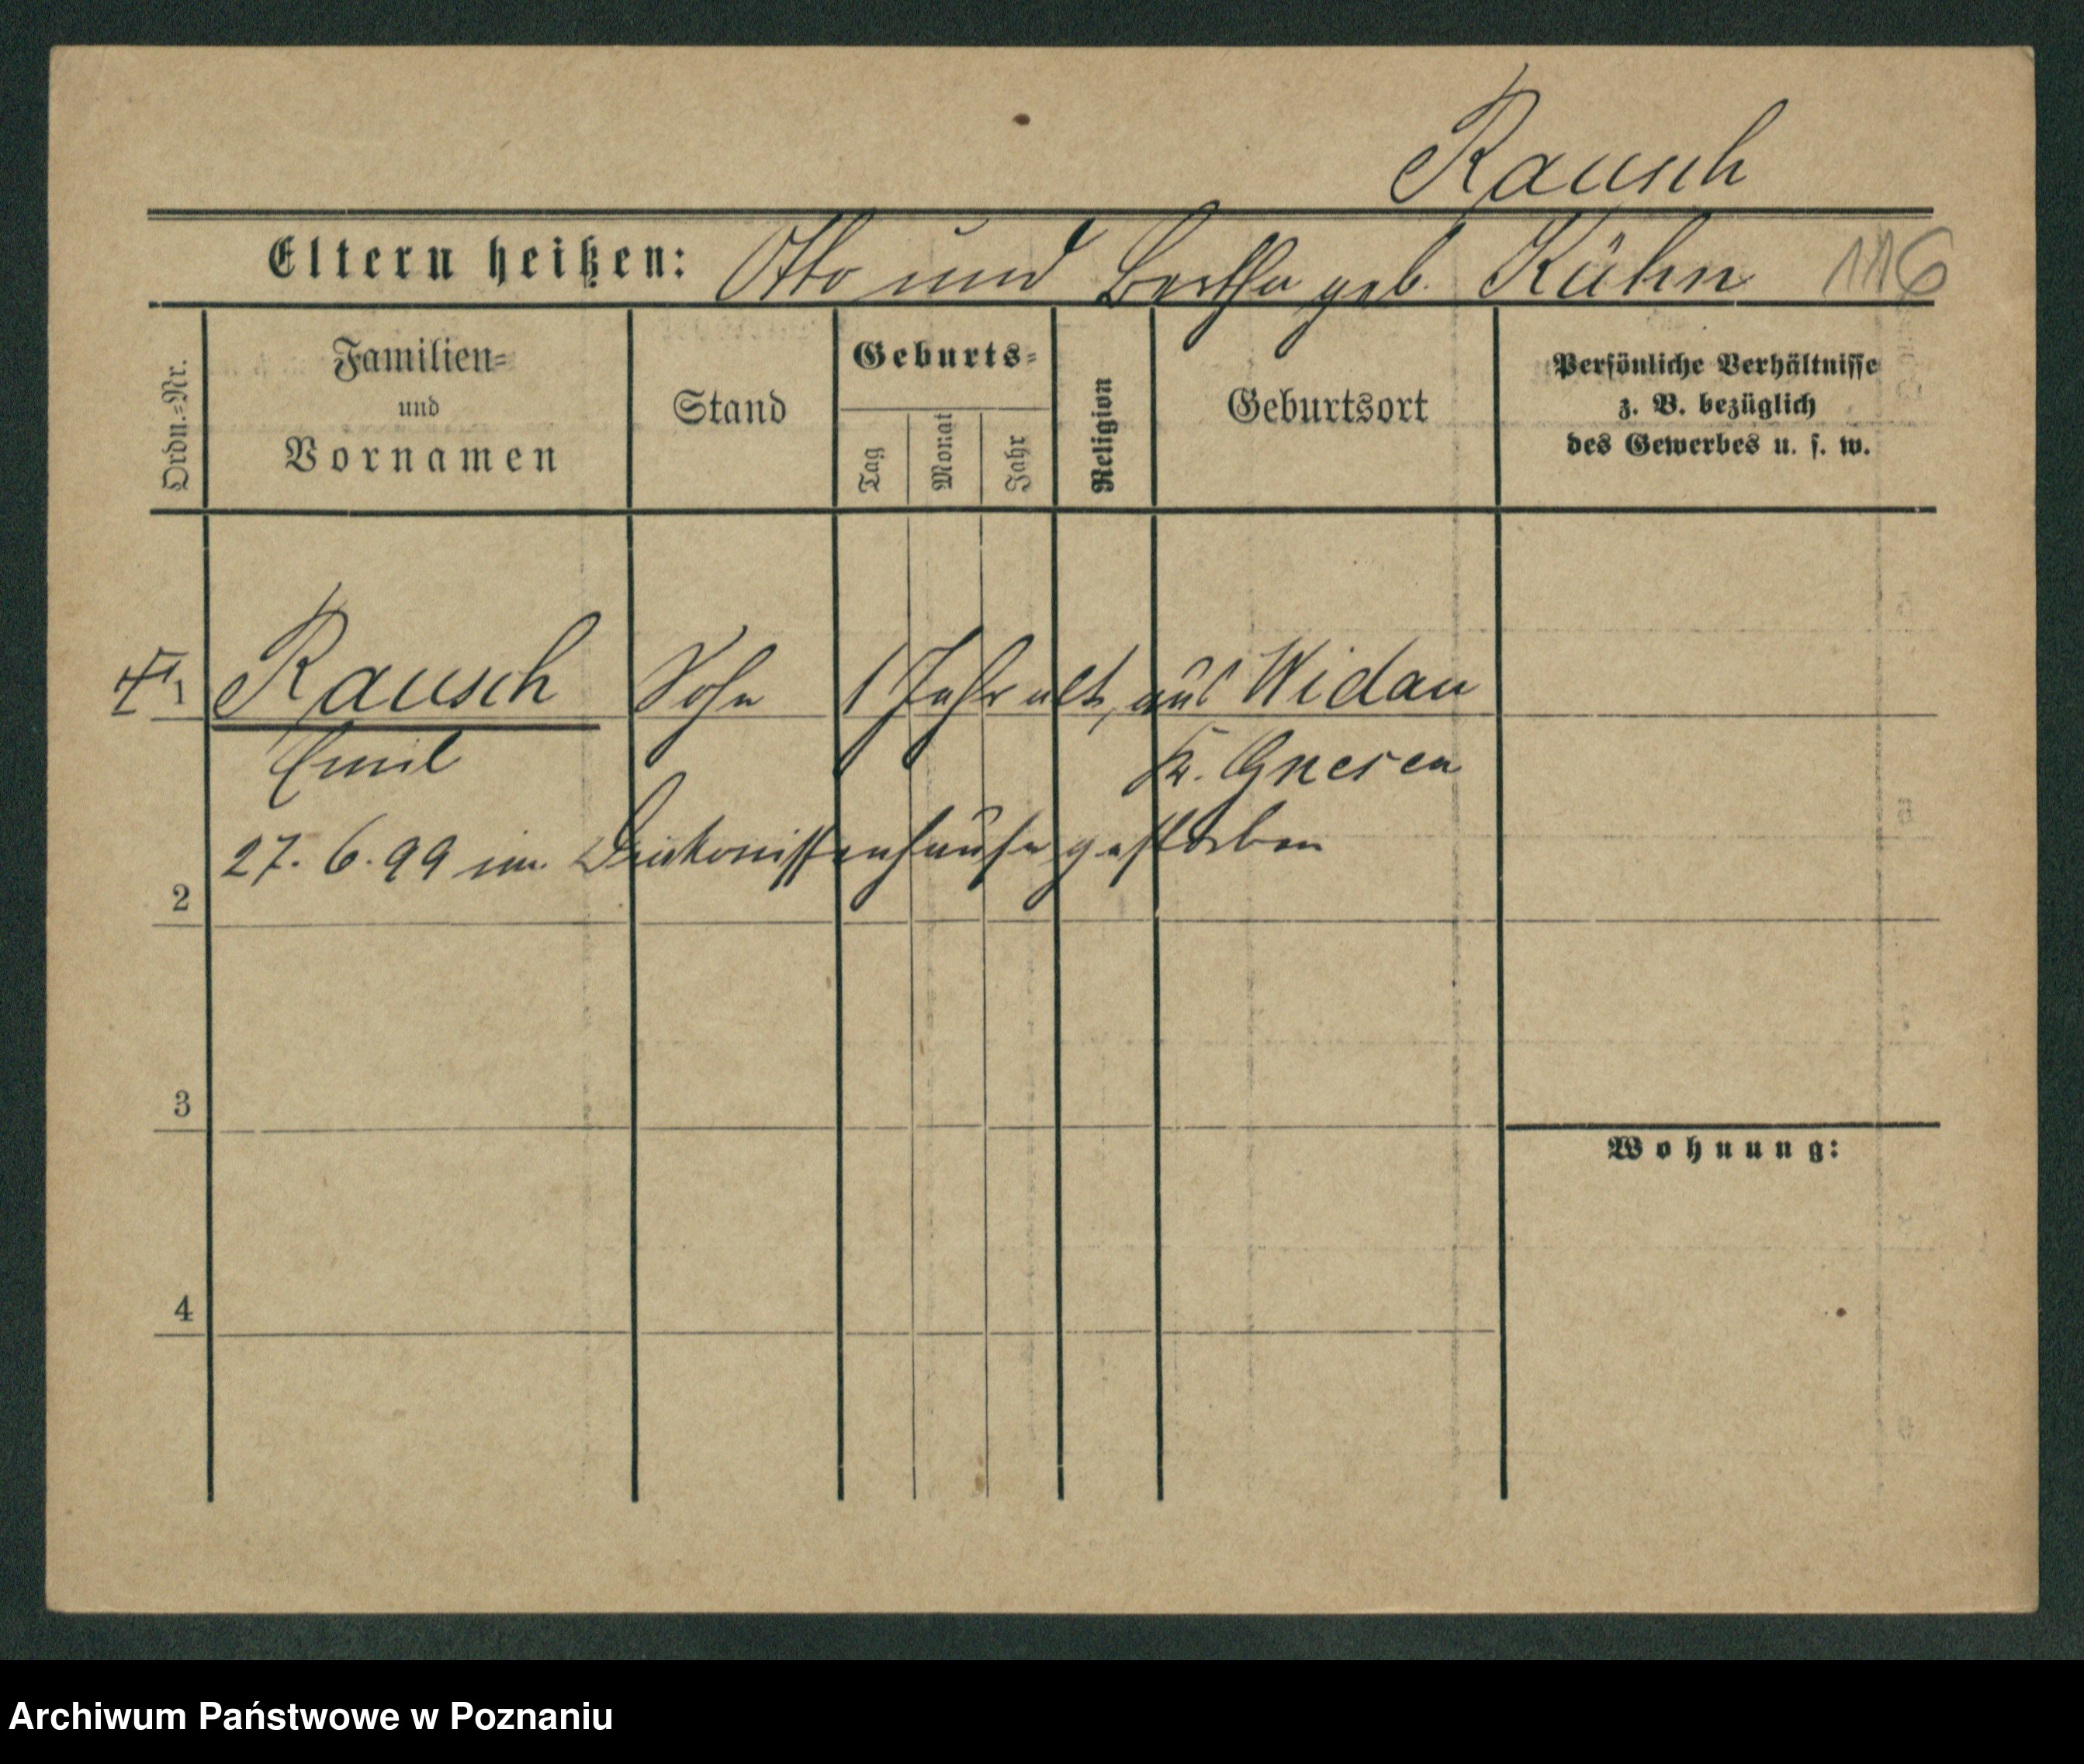 Rausch
Eltern heißen: Otto und Bertha geb. Kühn 116
Ordn.=Nr.
Familien=
und
Vornamen
Stand
Geburts=
Tag
Monat
Jahr
Religion
Geburtsort
Persönliche Verhältnisse
z. B. bezüglich
des Gewerbes u. s. w.
1 Rausch Sohn 1 Jahr alt, aus Widau
Emil Kr. Gnesen
27. 6. 99 im Diakonissenhause gestorben
2
3
Wohnung:
4
Archiwum Państwowe w Poznaniu